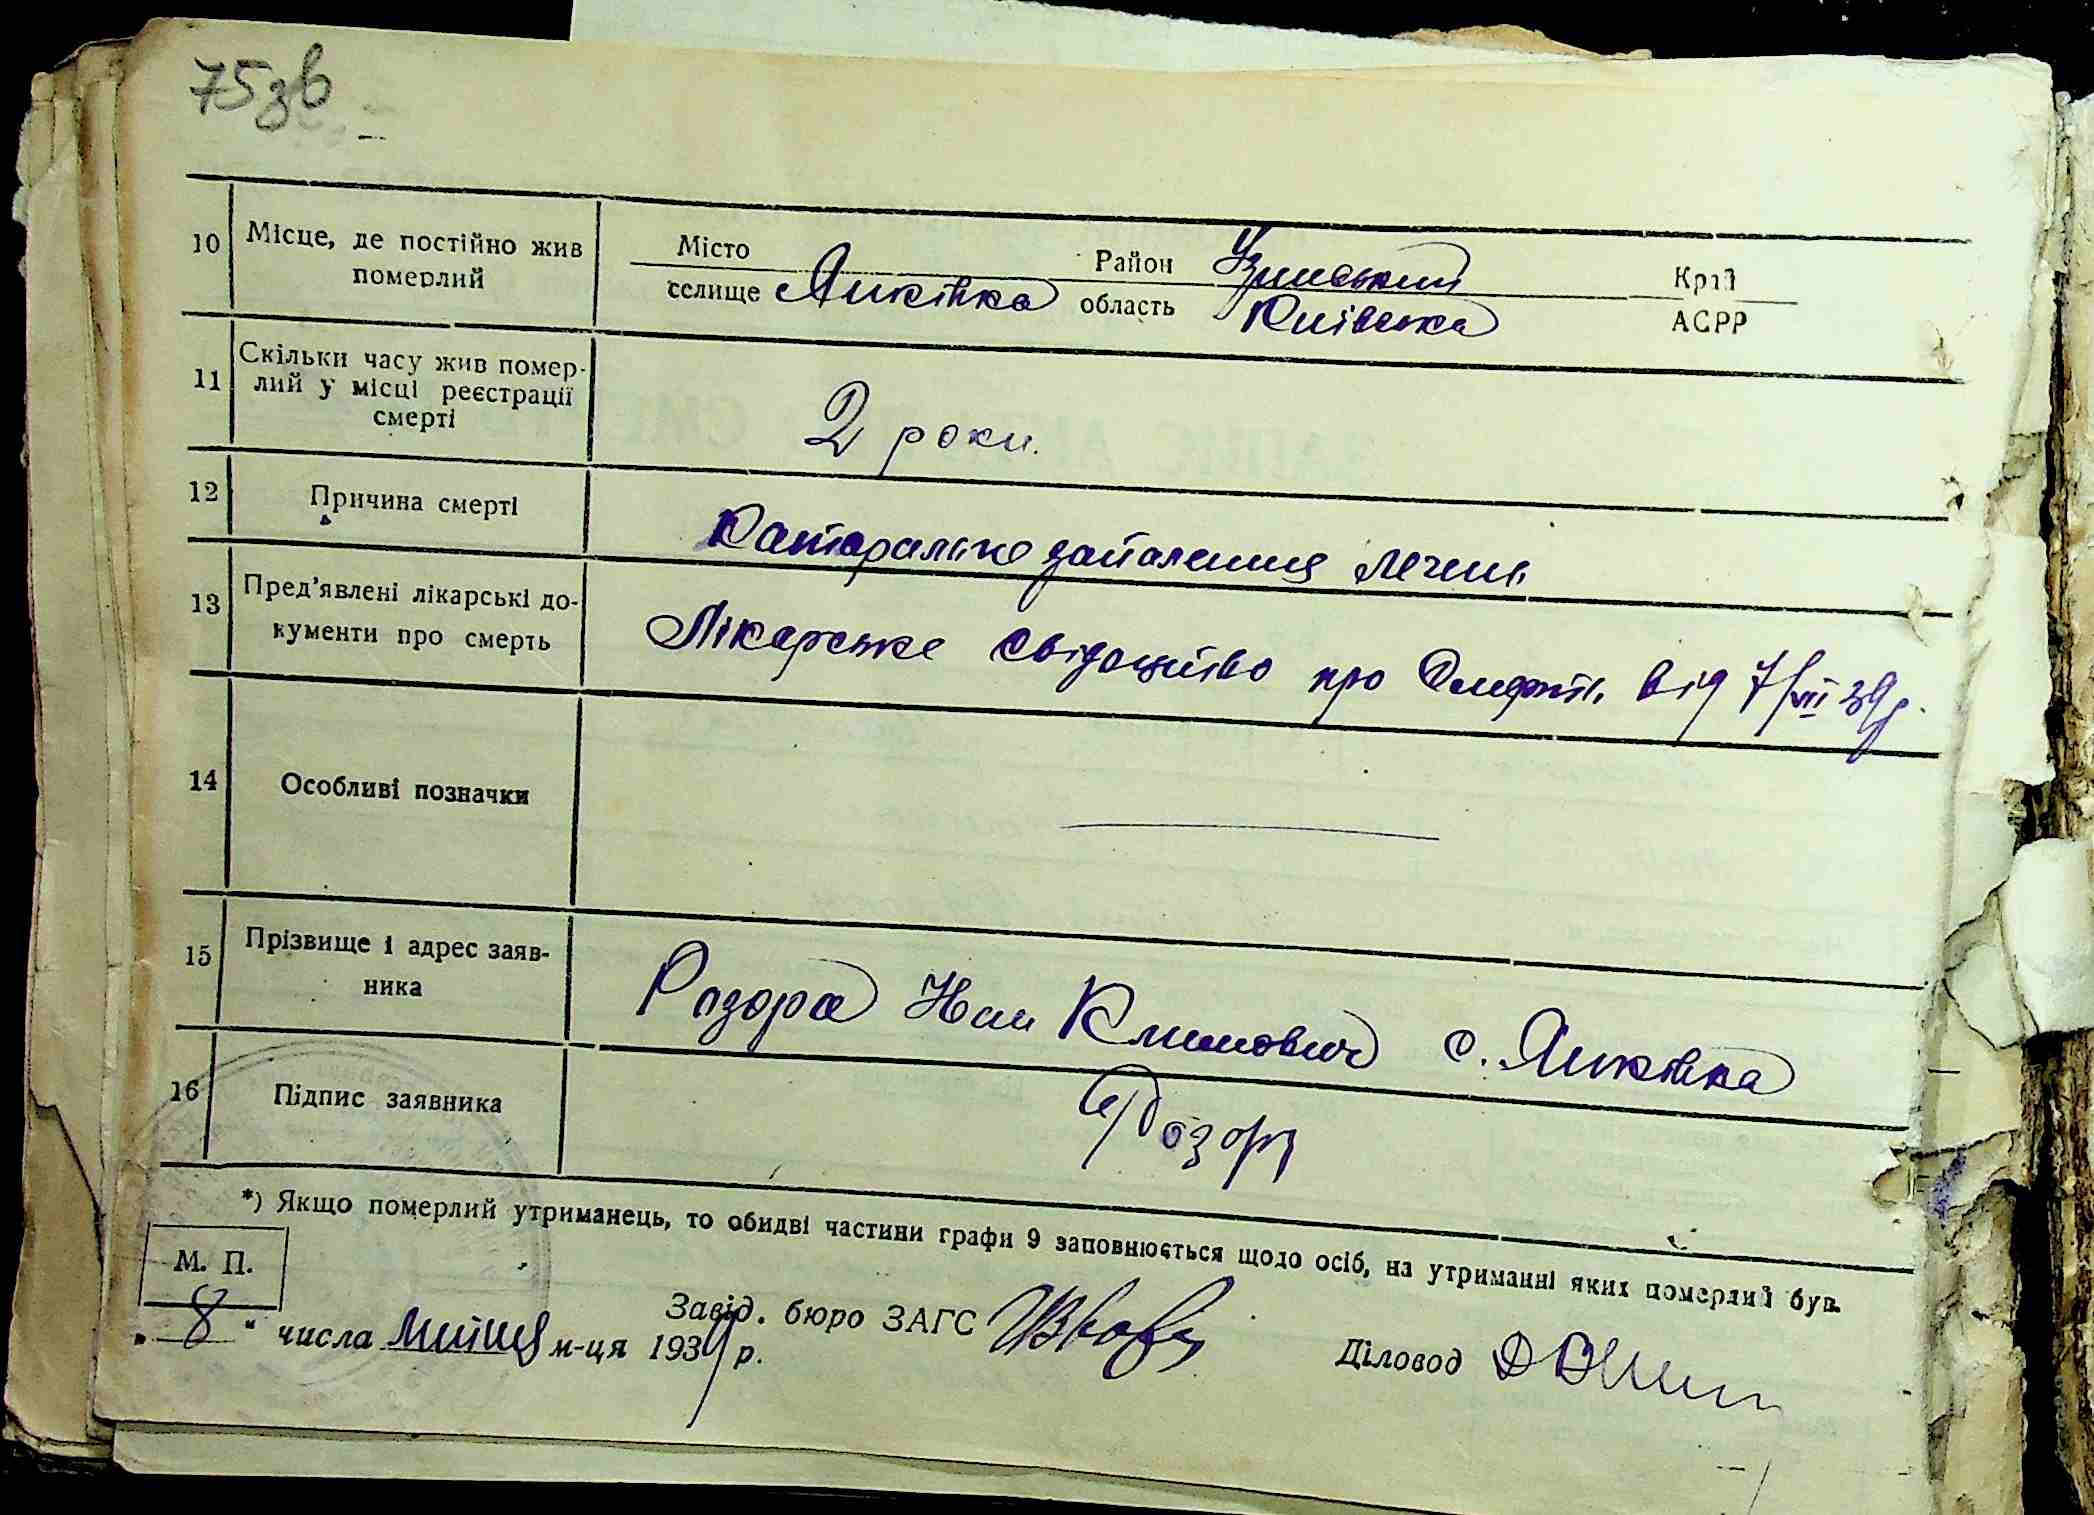 75зв
10 Місце, де постійно жив померлий
Місто Район Узинський Край
селище Янківка область Київська АСРР
11 Скільки часу жив помер-
лий у місці реєстрації
смерті
2 роки.
12 Причина смерті
Катаральне запалення легень
13 Пред'явлені лікарські до-
кументи про смерть
Лікарське свідоцтво про смерть від 7/VII 39р.
14 Особливі позначки
15 Прізвище і адрес заяв-
ника
Розора Іван Климович с. Янківка
16 Підпис заявника
Розора
*) Якщо померлий утриманець, то обидві частини графи 9 заповнюється щодо осіб, на утриманні яких померлий був.
М. П.
„ 8 “ числа липня м-ця 1939 р.
Завід. бюро ЗАГС
Діловод